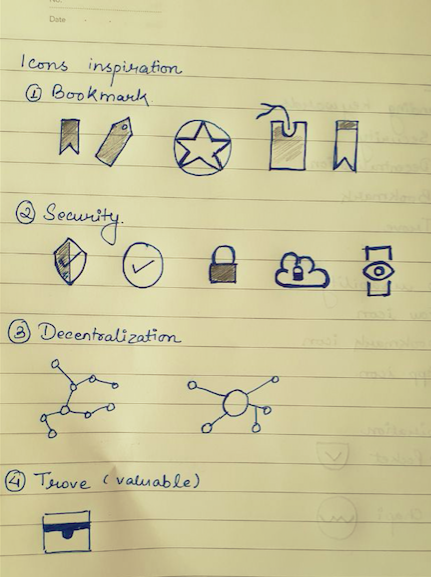 No.
Date
Icons inspiration
① Bookmark
② Security.
③ Decentralization
④ Trove (valuable)